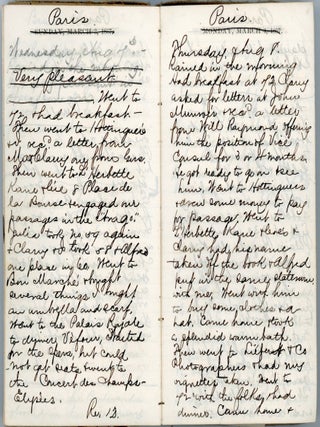 Paris
SUNDAY, MARCH 5, 187
Wednesday Aug 7th
Very pleasant
Went to
72 & had breakfast —
Then went to Hottinguer's
& rec'd a letter from
& one from
then went to J Herbette
Kane & Cie 8 Place de
la Bourse & engaged our
passages in the
Julia took no 99 again
& Clary & I took 58 & Alfred
one place in 60. Went to
Bon Marché & bought
several things. I bought
an umbrella and scarf.
Went to the Palais Royale
to dinner, Vefours, Started
for the Opera, but could
not get seats & went to
the Concert des Champs-
Elysées.
Rec 12.
Paris.
MONDAY, MARCH 6, 187
Thursday Aug 8.
Rained in the morning
Had breakfast at 72. Clary
asked for letters at John
Munroe's & rec'd a letter
from Will Raymond offering
him the position of Vice
Consul for 3 or 4 months.
He got ready to go & see
him. Went to Hottinguer's
& drew some money to pay
for passage. Went to
J Herbette, Kane & Cie &
Clary had his name
taken off the book & Alfred
put in the same stateroom
with me. Went with him
to buy some clothes & a
hat. Came home & took
a splendid warm bath.
Then went to & Co
Photographers & had my
vignette taken. Went to
72 with the folks & had
dinner. Came home &